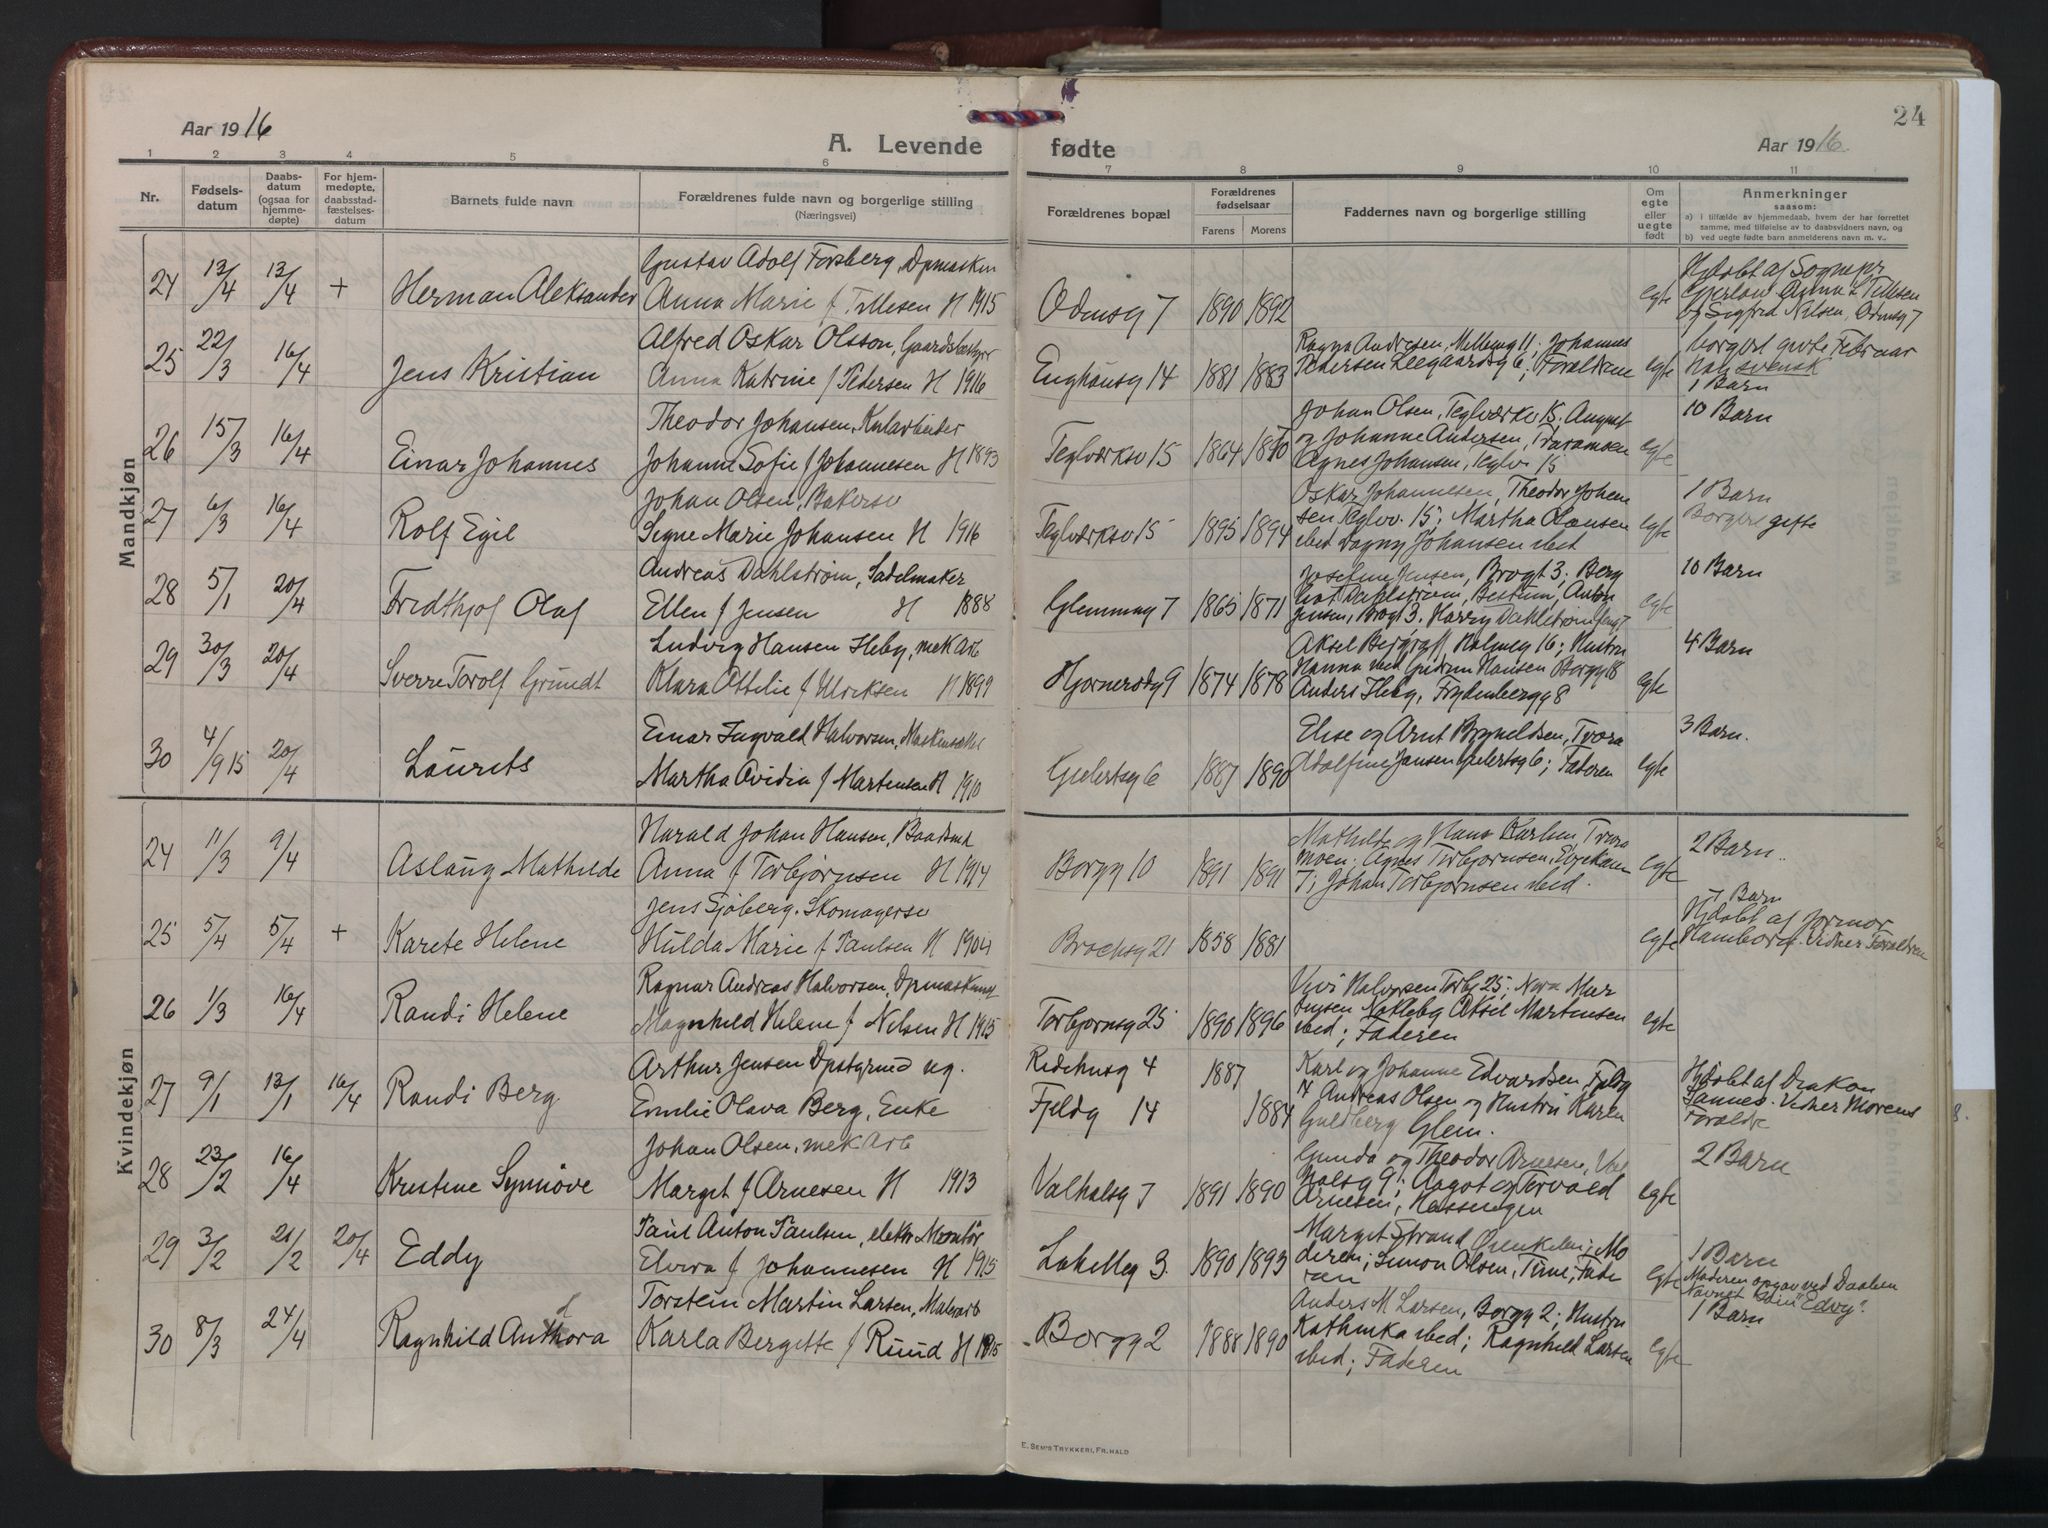 24
Aar 1916
A. Levende
fødte
Aar 1916
1 2 3 4 5 6 7 8 9 10 11
Nr. Fødsels-datum Daabs-datum (ogsaa for hjemme-døpte) For hjem-medøpte, daabsstad-fæstelses-datum Barnets fulde navn Forældrenes fulde navn og borgerlige stilling (Næringsvei) Forældrenes bopæl Forældrenes fødselsaar Farens Morens Faddernes navn og borgerlige stilling Om egte eller uegte født Anmerkninger saasom:
a) i tilfælde av hjemmedaab, hvem der har forrettet samme, med tilføielse av to daabsvidners navn, og
b) ved uegte fødte barn anmelderens navn m. v..
Mandkjøn
Gustav Adolf Forsberg, Dpmaskin
24 12/4 13/4 + Herman Aleksander Anna Marie f Tillesen H 1915 Odinsg 7 1890 1892 egte
og Sigfred Nilsen, Odinsg 7
Alfred Oskar Olsson, Gaardsbestyrer Ragna Andresen, ; Johannes borgerl gifte Februar
25 22/3 16/4 Jens Kristian Anna Katrine f Pedersen H 1916 Enghausg 14 1881 1883 Pedersen Leegaardsg 6; Forældrene egte svensk
1 Barn
Theodor Johansen, Kularbeider Johan Olsen, Teglverksv 15. August 10 Barn
26 15/3 16/4 Einar Johannes Johanne Sofie f Johannesen H 1893 Teglværksv 15 1864 1870 og Johanne Andersen, Traramoen egte
Agnes Johansen, Teglv. 15
Johan Olsen, Bakersv Oskar Johannesen, Theodor Johan 1 Barn
27 6/3 16/4 Rolf Egil Signe Marie Johansen H 1916 Teglværksv 15 1895 1894 sen Teglvv. 15; Martha Olausen egte Borgerl gifte
ibed Dagny Johansen ibed
Andreas Dahlstrøm, Sadelmaker Josefine Jensen, Brogt 3; Berg 10 Barn
28 5/1 20/4 Fredthjof Olaf Ellen f Jensen H 1888 Glemmang 7 1865 1871 liot Dahlstrøm, Bestum, Anton egte
Jensen, Brogt 3. Harry Dahlstrøm
Ludvig Hansen Heby, mek Arb Aksel, Holmeg 16; Hustru 4 Barn
29 30/3 20/4 Sverre Torolf Grundt Klara Ottilie f Ulriksen H 1899 Hjørnerødg 9 1874 1878 Hanna ibed Gudrun Hansen Borgg 18 egte
Anders Heby, Frydenbergg 8
Einar Ingvald Halvorsen, Elise og Arnt Brynildsen, Trara 3 Barn.
30 4/9 15 20/4 Laurits Martha Ovidia f Martinsen H 1910 Gjelertsg 6 1887 1890 Adolfine Jansen Gjelertsg 6; Faderen egte
Kvindekjøn
Harald Johan Hansen, Baadsmd Mathilde og Hans Karlsen Trara 2 Barn.
24 11/3 9/4 Aslaug Mathilde Anna f Torbjørnsen H 1914 Borgg 10 1891 1891 moen. Agnes Torbjørnsen, egte
7; Johan Torbjørnsen ibed.
Jens Sjøberg. Skomagersv 7 Barn
25 5/4 5/4 + Karete Helene Hulda Marie f Paulsen H 1904 Brochsg 21 1858 1881 egte Hjdøbt af Jormor
Hamborg. Vidner Forældren
Ragnar Andreas Halvorsen, Dpmaskinist Vivi Halvorsen Torbj 25; Nora Mar
26 1/3 16/4 Randi Helene Magnhild Helene f Nilsen H 1915 Torbjørnsg 25 1890 1896 tinsen Nakleby Aksel Martinsen egte
ibed; Faderen
Arthur Jensen Dpstyrmd ug. Ridehusg 4 1887 Karl og Johanne Edvardsen, Fjeldg Hjdøbt af Diakon
27 9/1 13/1 16/4 Randi Berg Emilie Olava Berg, Enke Fjeldg 14 1884 Andreas Olsen og Hustru Karen Sannes. Vidner Morens
Guldberg Glem. Forældre
Johan Olsen, mek Arb Gunda og Theodor Arnesen, Val 2 Barn
28 23/2 16/4 Kristine Synnøve Margit f Arnesen H 1913 Valhalsg 7 1891 1890 halsg 9; Aagot og Torvald egte
Arnesen; Hassengen
Paul Anton Paulsen, elektr Montør Margit Strand; Mo 1 Barn
29 3/2 21/2 20/4 Eddy Elvira f Johannesen H 1915 Lakolleg 3 1890 1893 deren; Simon Olsen, Tune, Fade egte Moderen opgav ved Daaben
ren Navnet "Edvy".
Torstein Martin Larsen, Malerarb Anders M. Larsen, Borgg 2; Hustru 1 Barn
30 8/3 24/4 Ragnhild Anthora Karla Bergitte f Ruud H 1915 Borgg 2 1888 1890 Kathinka ibed; Ragnhild Larsen egte
ibed; Faderen
E. SEM'S TRYKKERI, FR.HALD